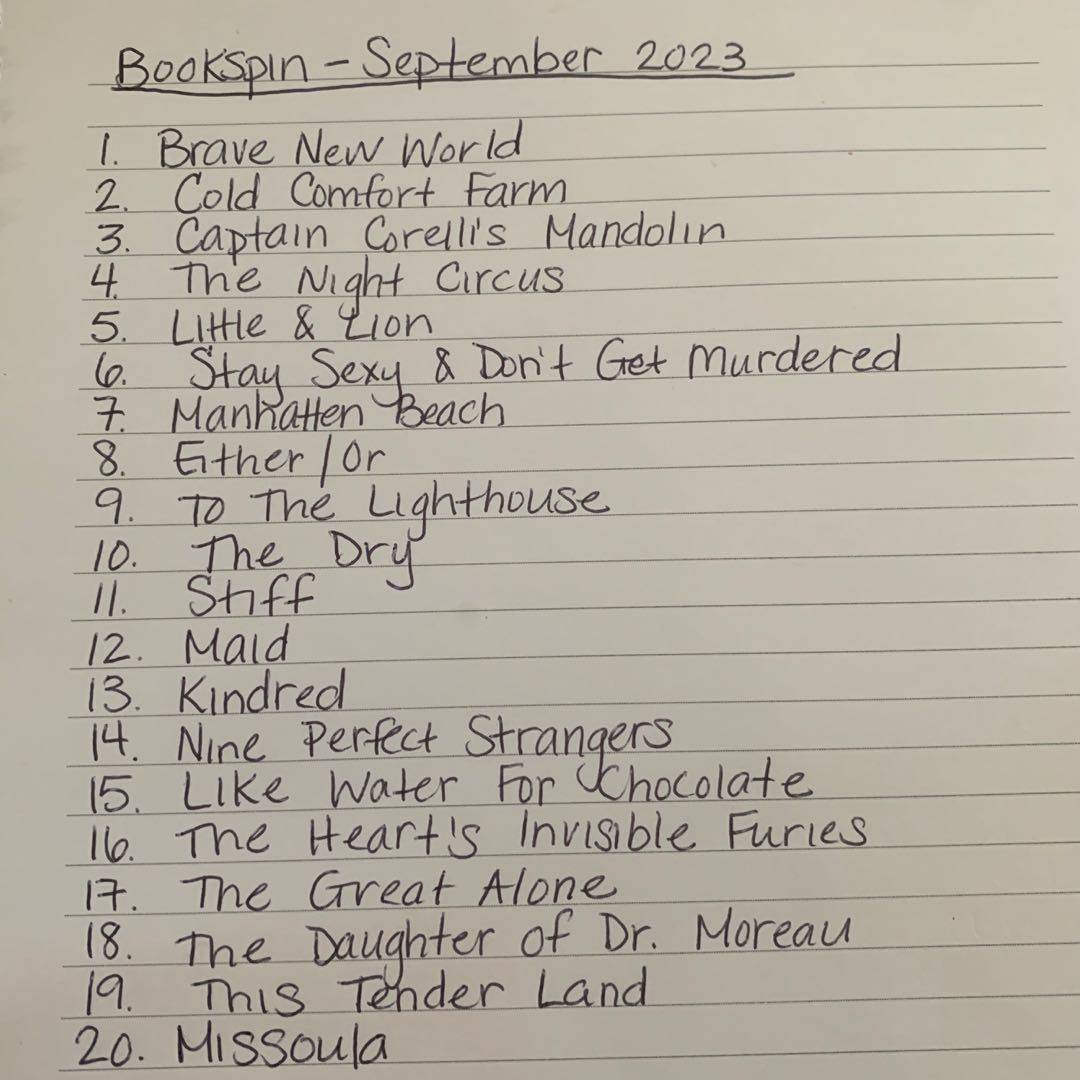 Bookspin - September 2023
1. Brave New World
2. Cold Comfort Farm
3. Captain Corelli's Mandolin
4. The Night Circus
5. Little & Lion
6. Stay Sexy & Don't Get Murdered
7. Manhatten Beach
8. Either / Or
9. To The Lighthouse
10. The Dry
11. Stiff
12. Maid
13. Kindred
14. Nine Perfect Strangers
15. Like Water For Chocolate
16. The Heart's Invisible Furies
17. The Great Alone
18. The Daughter of Dr. Moreau
19. This Tender Land
20. Missoula